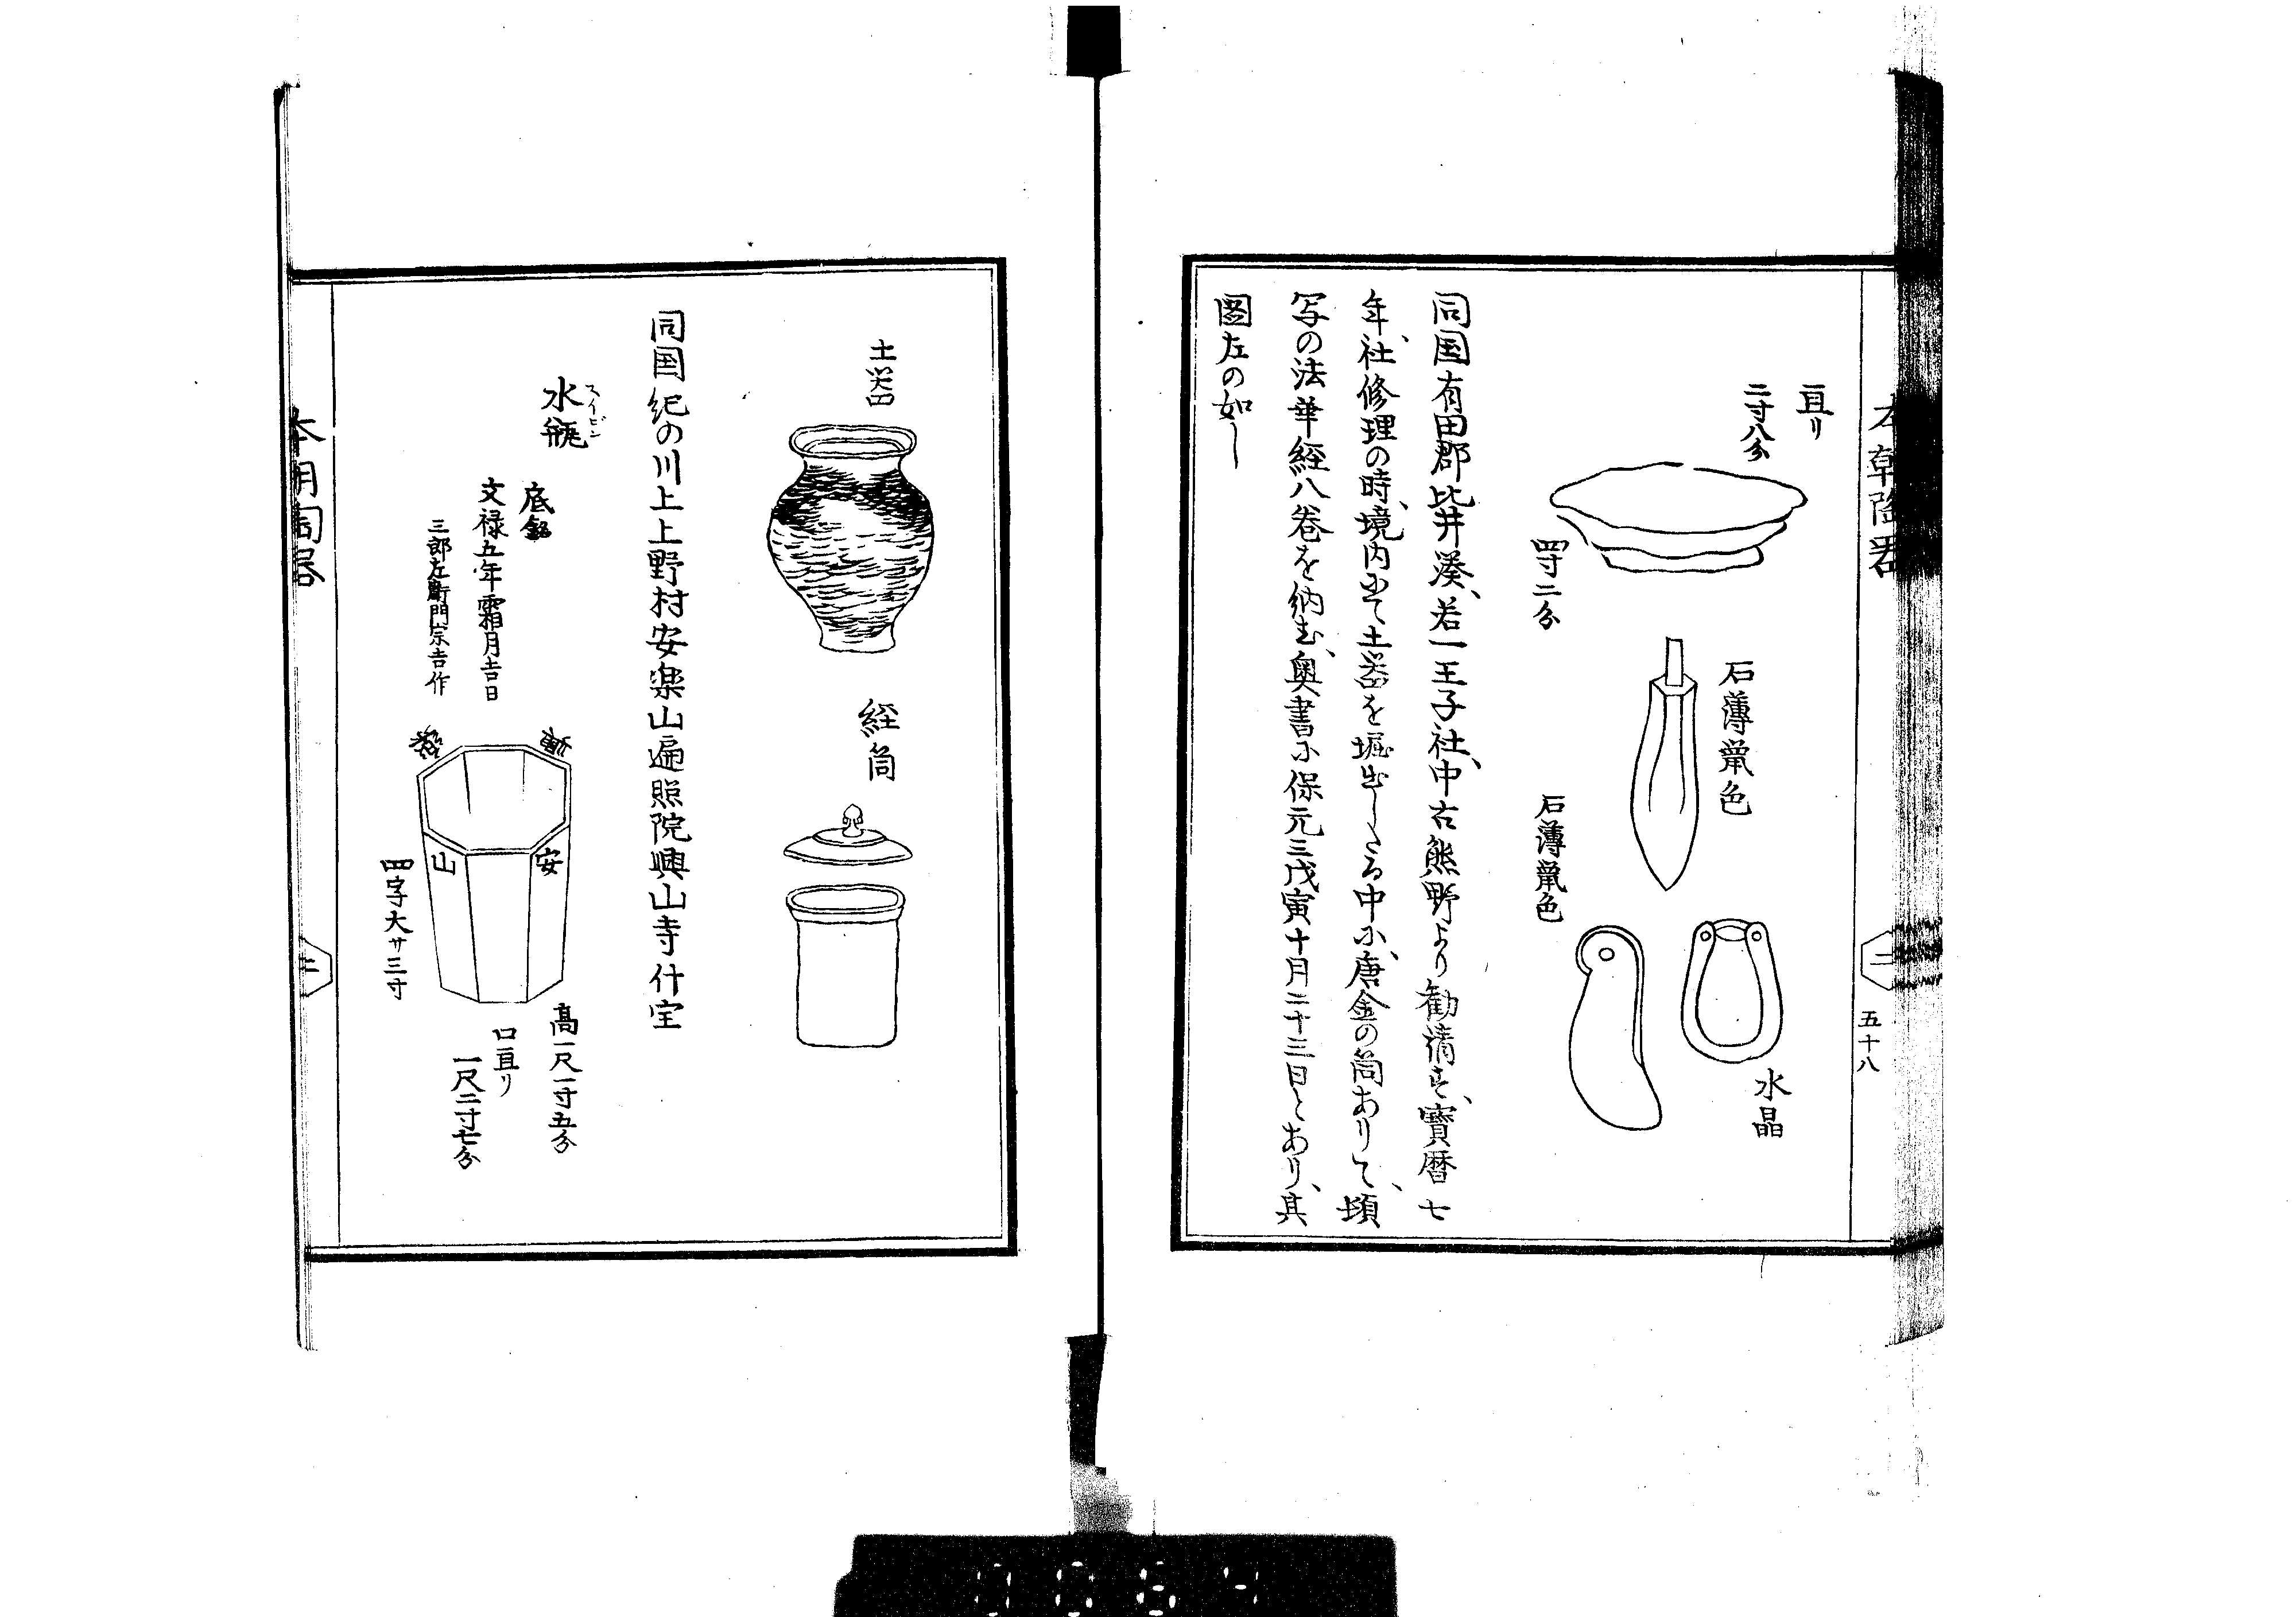 五十八
二
亘リ
二寸八分
四寸二分
石薄鼠色
石薄鼠色
水晶
同国有田郡比井湊、若一王子社、中古熊野より勧請す、寶暦七
年、社修理の時、境内にて土器を堀出したる中に、唐金の筒ありて、頓
写の法華経八巻を納む、奥書に保元三戊寅十月二十三日とあり、其
圖左の如し
土器
経筒
同国紀の川上上野村安楽山遍照院興山寺什宝
水瓶
スイビン
底銘
文禄五年霜月吉日
三郎左衛門宗吉作
興
楽
安
山
四字大サ三寸
高一尺一寸五分
口亘リ
一尺二寸七分